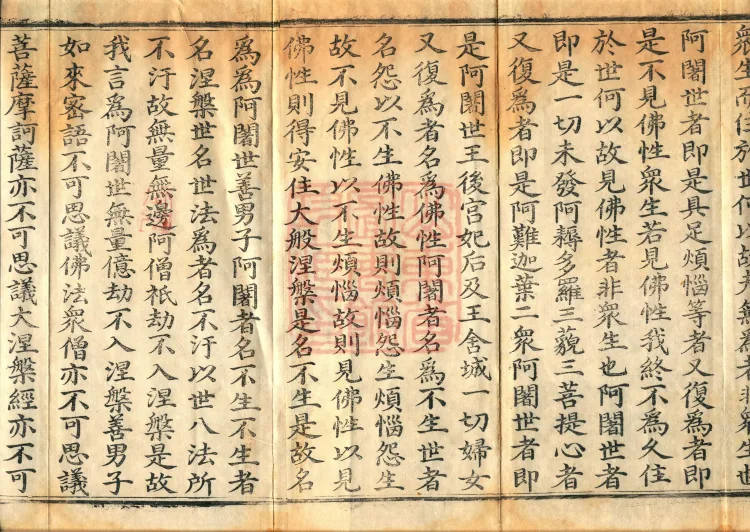 衆生而住於世何以故夫無爲者非衆生世
阿闍世者即是具足煩惱等者又復爲者即
是不見佛性衆生若見佛性我終不爲久住
於世何以故見佛性者非衆生也阿闍世者
即是一切未發阿耨多羅三藐三菩提心者
又復爲者即是阿難迦葉二衆阿闍世者即
是阿闍世王後宮妃后及王舍城一切婦女
又復爲者名爲佛性阿闍者名爲不生世者
名怨以不生佛性故則煩惱怨生煩惱怨生
故不見佛性以不生煩惱故則見佛性以見
佛性則得安住大般涅槃是名不生是故名
爲爲阿闍世善男子阿闍者名不生不生者
名涅槃世名世法爲者名不汙以世八法所
不汙故無量無邊阿僧祇劫不入涅槃是故
我言爲阿闍世無量億劫不入涅槃善男子
如來密語不可思議佛法衆僧亦不可思議
菩薩摩訶薩亦不可思議大涅槃經亦不可